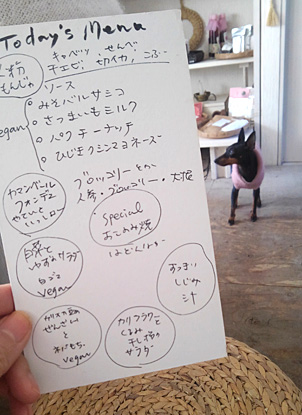 Today's Menu
粉
もんじゃ
キャベツ、せんべ
千エビ、切イカ、こぶ
ソース
vegan
みそバルサミコ
さつまいもミルク
パクチーナッツ
ひじきクミンマヨネーズ
ブロッコリーとか
人参・ブロッコリー・大根
カマンベール
フォンデュ
Special
おこのみ焼
白菜と
ゆずのサラダ
vegan
あつあつ
しじみ
汁
ぜんざい
と
vegan
カリフラワーと
くるみ
干し柿の
サラダ